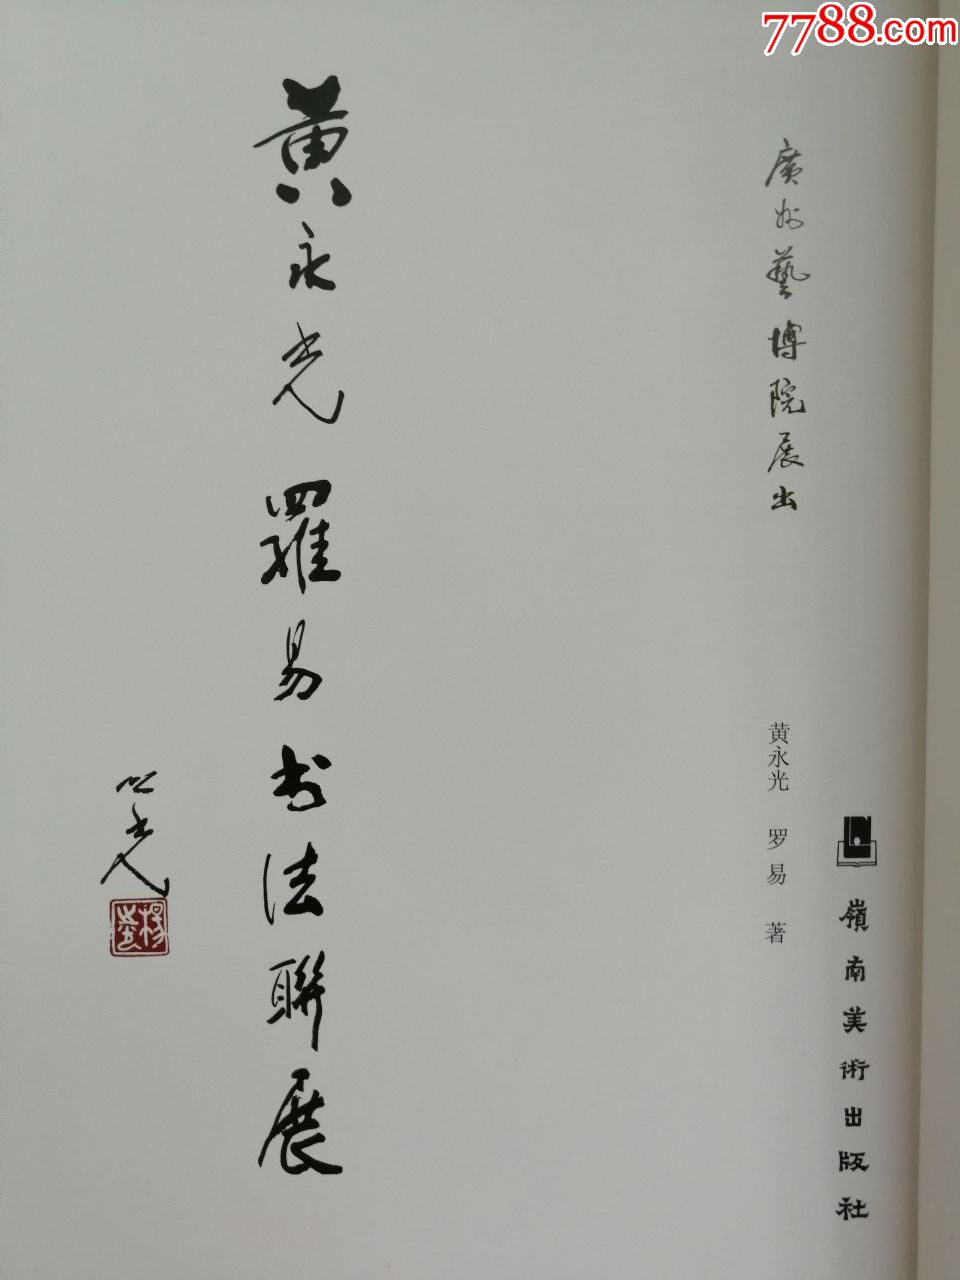 7788.com
嶺南美術出版社
廣州藝博院展出
黄永光 罗易 著
黄永光 羅易书法聯展